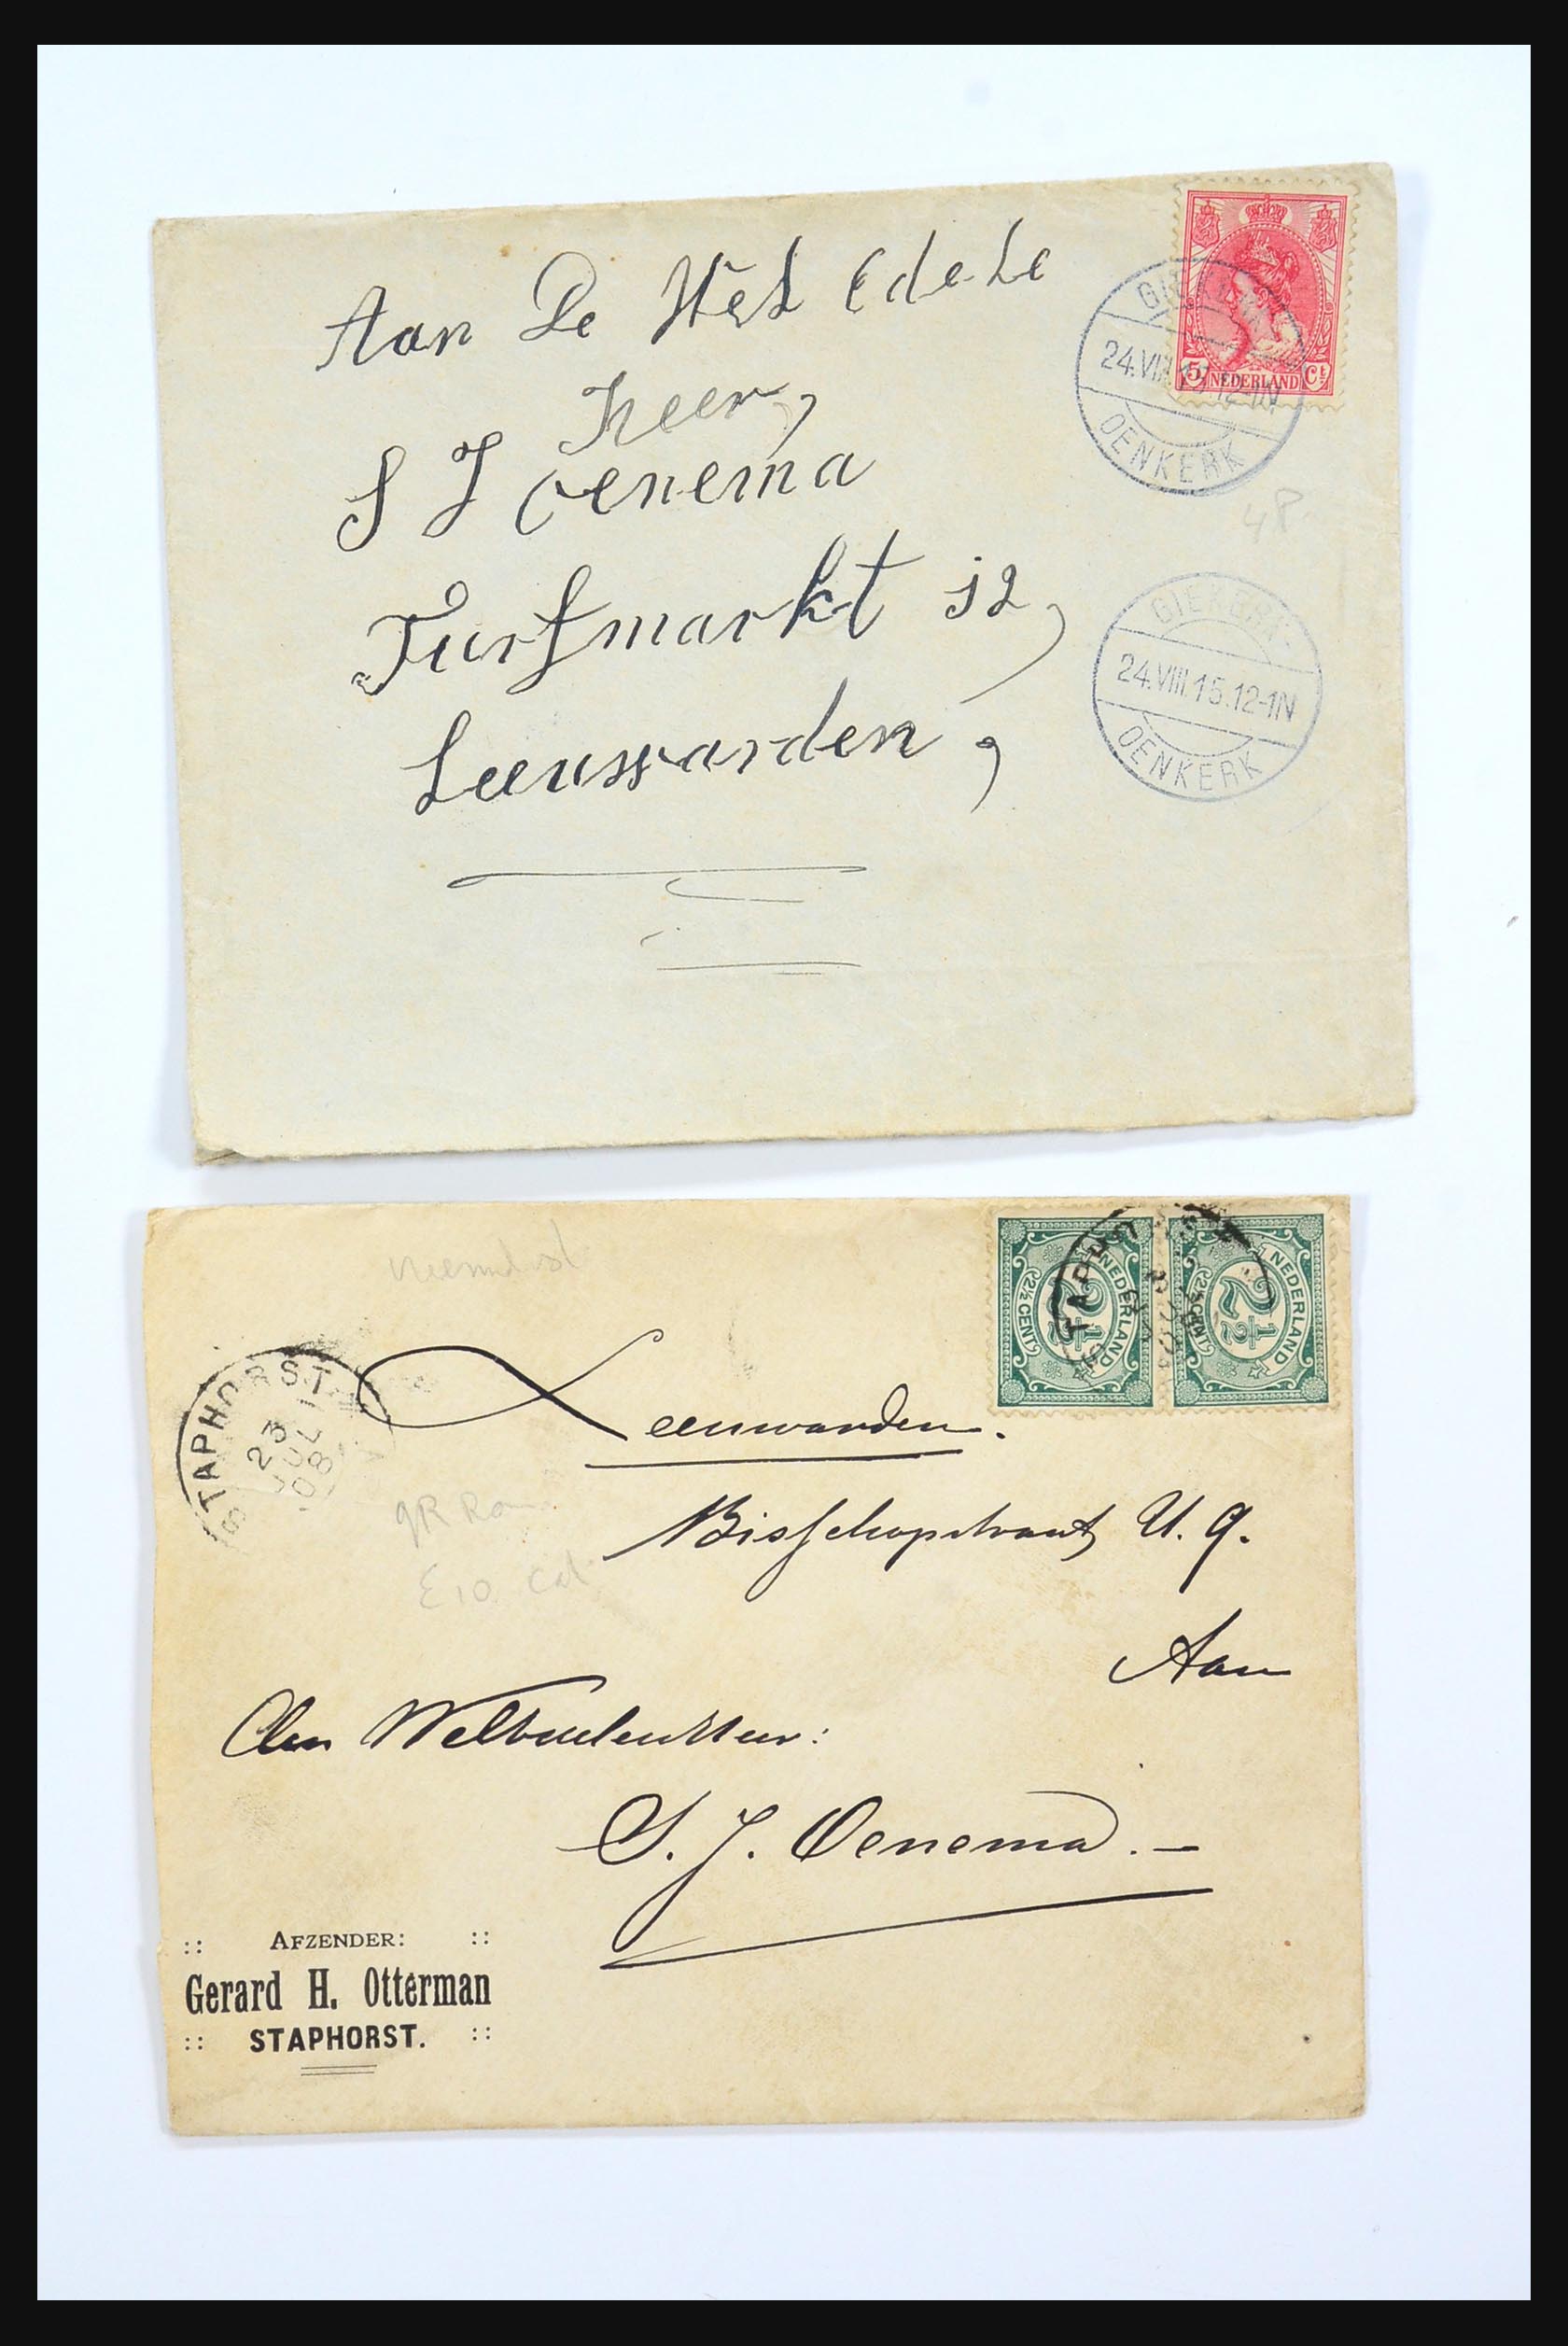 Aan De Wel Edele
heer,
S J Oenema
Turfmarkt 12,
Leeuwarden,
5 NEDERLAND Ct
24.VIII.15.12-1N
OENKERK
4P
GIEKERK-
24.VIII.15.12-1N
OENKERK
NEDERLAND
2½
2½ CENT
NEDERLAND
2½
2½ CENT
STAPHORST
23
JUL
08
Leeuwarden.
Bisschopstraat U. g.
Aan
Den Weledelen Heer:
S. J. Oenema. –
E10
:: AFZENDER: ::
Gerard H. Otterman
:: STAPHORST. ::